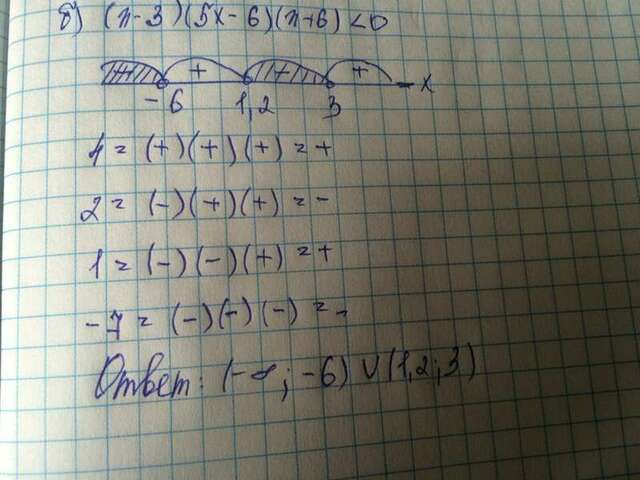 б) (x-3)(5x-6)(x+6)<0
+ - + x
-6 1,2 3
4 = (+)(+)(+) = +
2 = (-)(+)(+) = -
1 = (-)(-)(+) = +
-7 = (-)(-)(-) = -
Ответ: (-∞; -6) ∪ (1,2; 3)